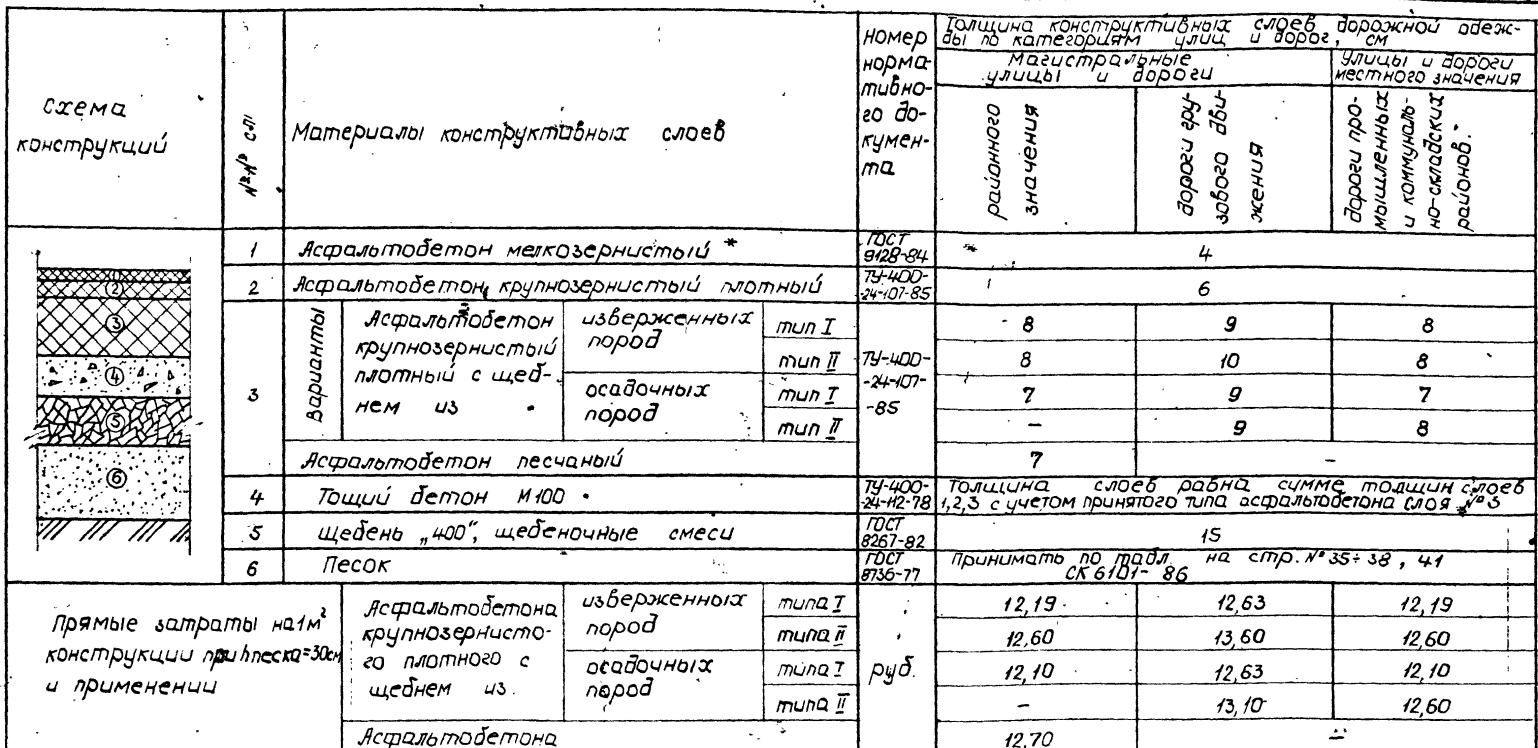 Схема
конструкций
№№ сл.
Материалы конструктивных слоев
номер
норма-
тивно-
го до-
кумен-
та
Толщина конструктивных слоев дорожной одеж-
ды по категориям улиц и дорог, см
Магистральные
улицы и дороги
Улицы и дороги
местного значения
районного
значения
дороги гру-
зового дви-
жения
дороги про-
мышленных
и коммуналь-
но-складских
районов.
1 Асфальтобетон мелкозернистый * ГОСТ 9128-84 4
2 Асфальтобетон крупнозернистый плотный ТУ-400-24-107-85 6
3 Варианты
Асфальтобетон
крупнозернистый
плотный с щеб-
нем из
изверженных
пород
тип I 8 9 8
тип II 8 10 8
осадочных
пород
тип I 7 9 7
тип II – 9 8
ТУ-400-
-24-107-
-85
Асфальтобетон песчаный 7 –
4 Тощий бетон М100 ТУ-400-24-112-78
Толщина слоев равна сумме толщин слоев
1,2,3 с учетом принятого типа асфальтобетона слоя №3
5 Щебень „400", щебеночные смеси ГОСТ 8267-82 15
6 Песок ГОСТ 8736-77
Принимать по табл. на стр. №35÷38, 41
СК 6101-86
②
③
④
⑤
⑥
Прямые затраты на 1м²
конструкции при hпеска=30см
и применении
Асфальтобетона
крупнозернисто-
го плотного с
щебнем из
изверженных
пород
типа I 12,19 12,63 12,19
типа II 12,60 13,60 12,60
осадочных
пород
типа I 12,10 12,63 12,10
типа II – 13,10 12,60
руб.
Асфальтобетона 12,70 –